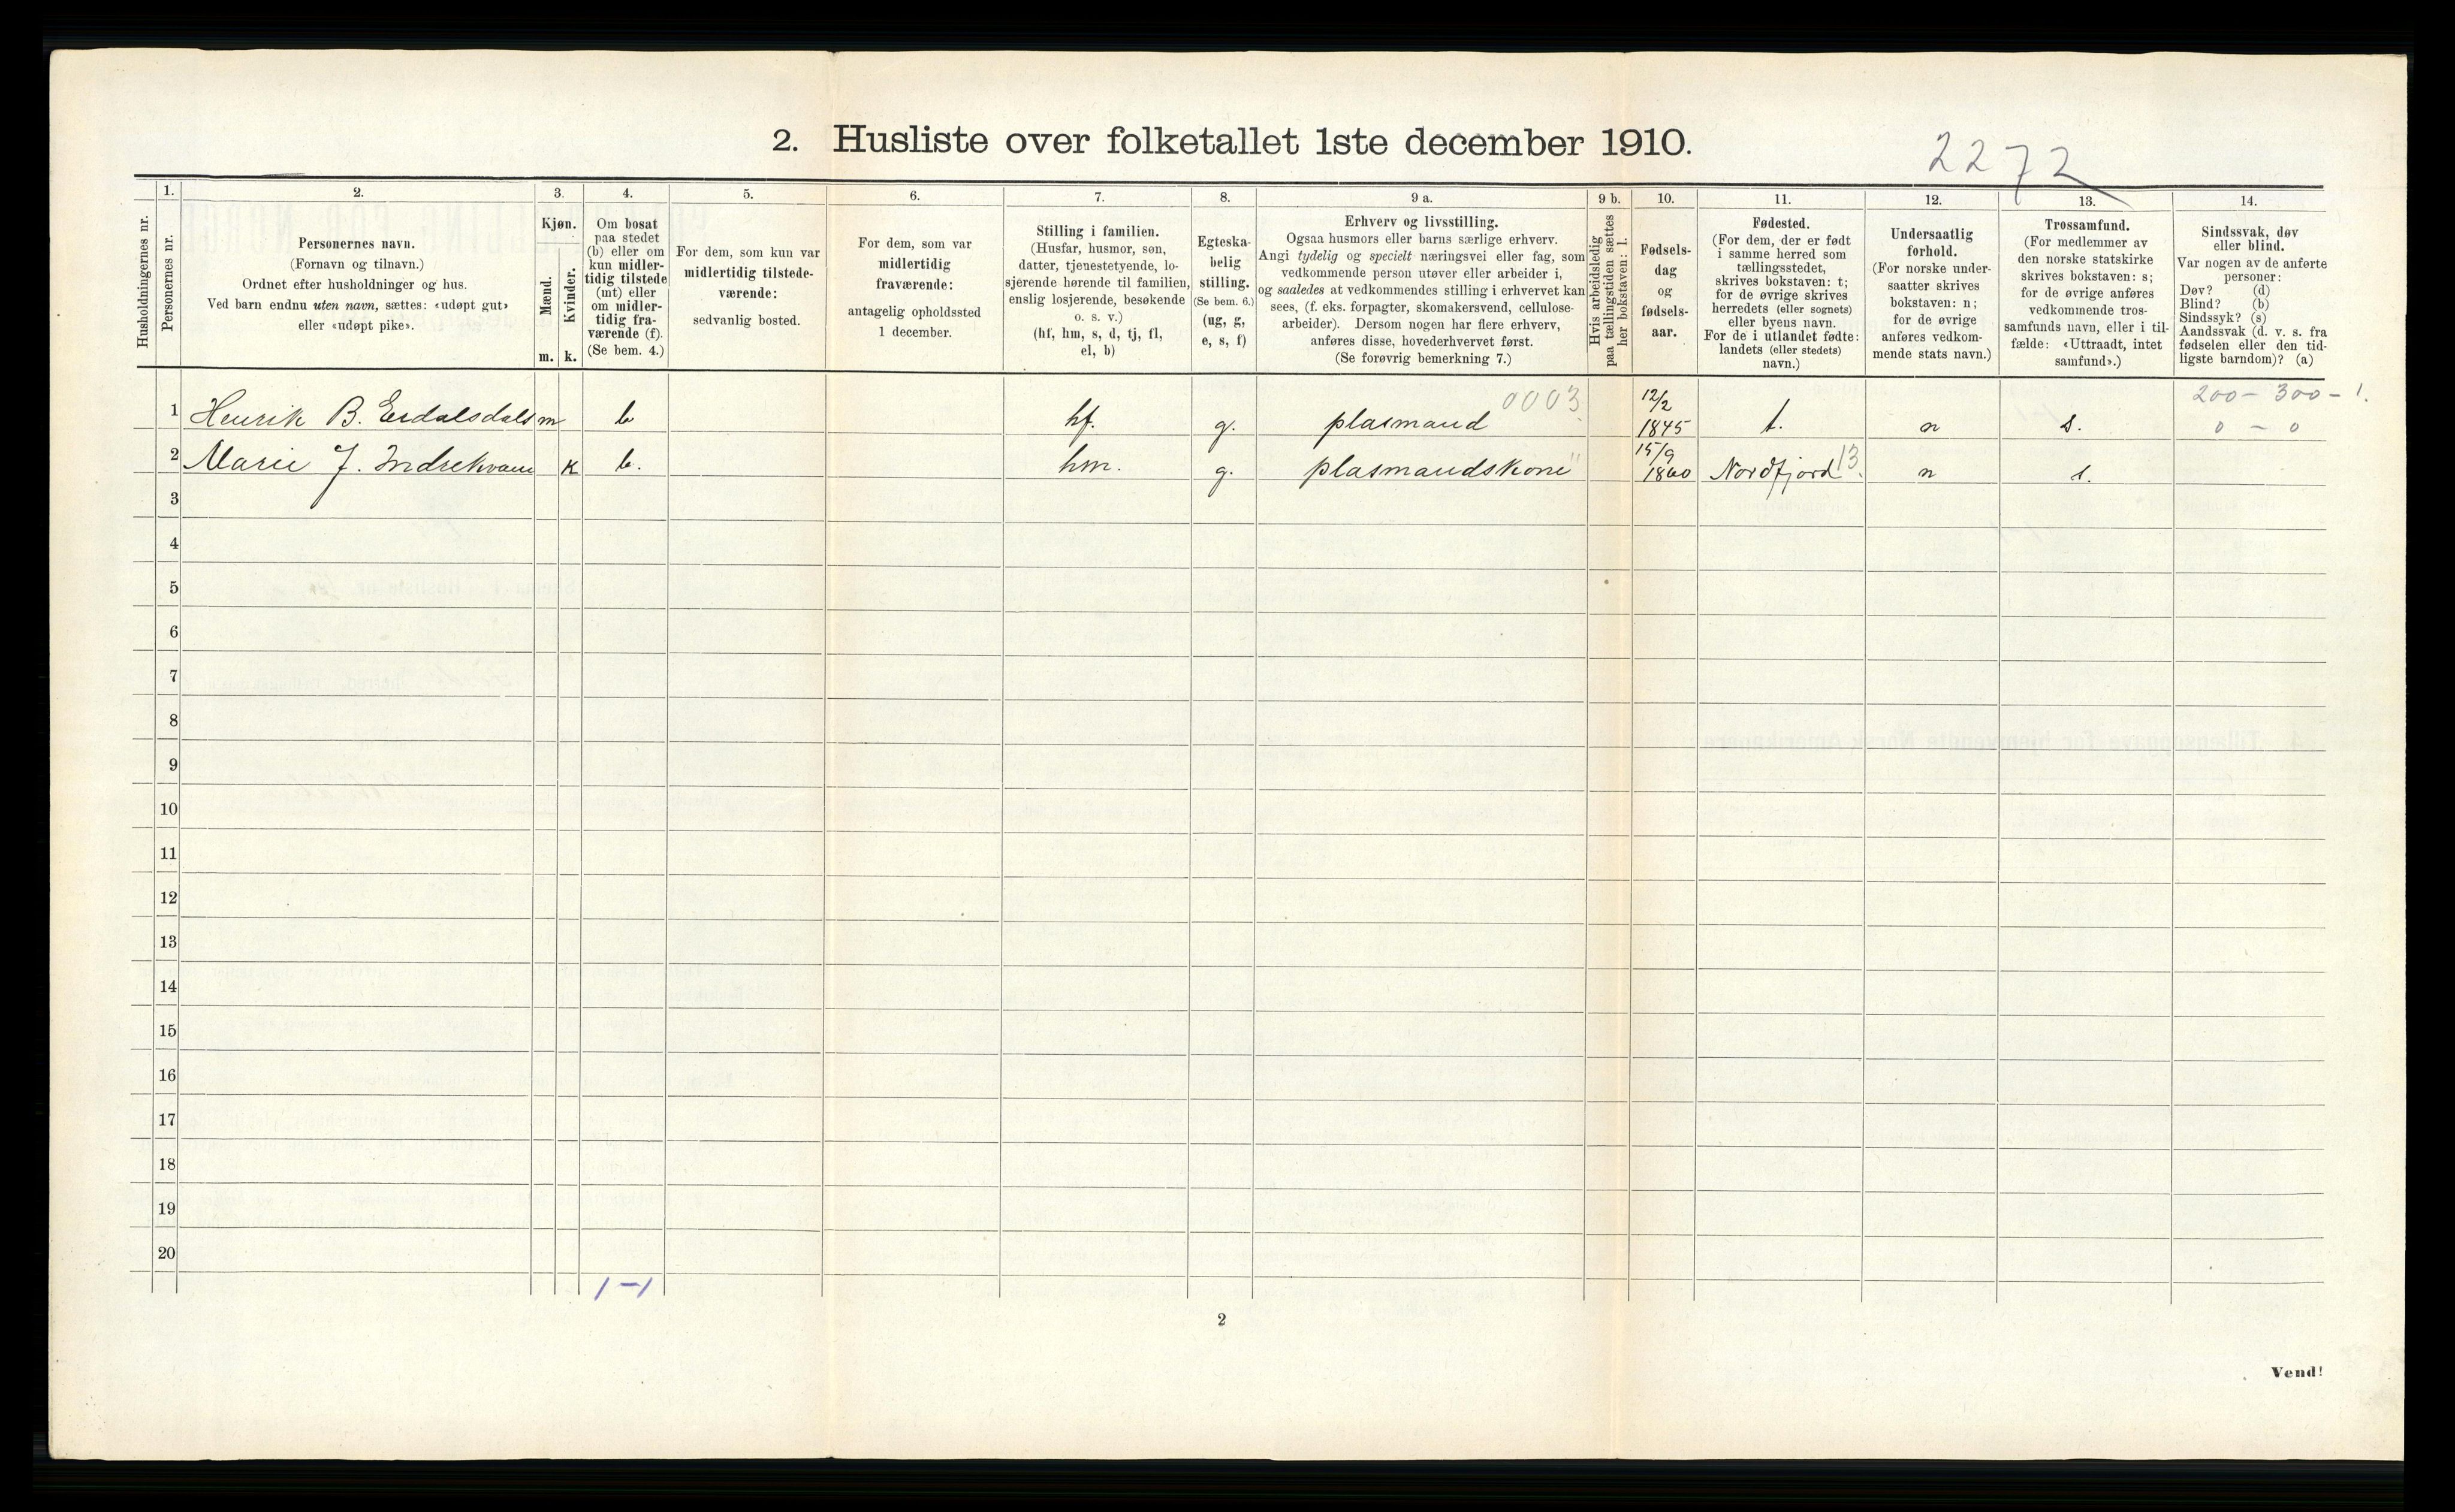 2. Husliste over folketallet 1ste december 1910.
2272
Husholdningernes nr.
1.
Personernes nr.
2.
Personernes navn.
(Fornavn og tilnavn.)
Ordnet efter husholdninger og hus.
Ved barn endnu uten navn, sættes: «udøpt gut»
eller «udøpt pike».
3.
Kjøn.
Mænd.
Kvinder.
m. k.
4.
Om bosat
paa stedet
(b) eller om
kun midler-
tidig tilstede
(mt) eller
om midler-
tidig fra-
værende (f).
(Se bem. 4.)
5.
For dem, som kun var
midlertidig tilstede-
værende:
sedvanlig bosted.
6.
For dem, som var
midlertidig
fraværende:
antagelig opholdssted
1 december.
7.
Stilling i familien.
(Husfar, husmor, søn,
datter, tjenestetyende, lo-
sjerende hørende til familien,
enslig losjerende, besøkende
o. s. v.)
(hf, hm, s, d, tj, fl,
el, b)
8.
Egteska-
belig
stilling.
(Se bem. 6.)
(ug, g,
e, s, f)
9 a.
Erhverv og livsstilling.
Ogsaa husmors eller barns særlige erhverv.
Angi tydelig og specielt næringsvei eller fag, som
vedkommende person utøver eller arbeider i,
og saaledes at vedkommendes stilling i erhvervet kan
sees, (f. eks. forpagter, skomakersvend, cellulose-
arbeider). Dersom nogen har flere erhverv,
anføres disse, hovederhvervet først.
(Se forøvrig bemerkning 7.)
9 b.
Hvis arbeidsledig
paa tællingstiden sættes
her bokstaven: l.
10.
Fødsels-
dag
og
fødsels-
aar.
11.
Fødested.
(For dem, der er født
i samme herred som
tællingsstedet,
skrives bokstaven: t;
for de øvrige skrives
herredets (eller sognets)
eller byens navn.
For de i utlandet fødte:
landets (eller stedets)
navn.)
12.
Undersaatlig
forhold.
(For norske under-
saatter skrives
bokstaven: n;
for de øvrige
anføres vedkom-
mende stats navn.)
13.
Trossamfund.
(For medlemmer av
den norske statskirke
skrives bokstaven: s;
for de øvrige anføres
vedkommende tros-
samfunds navn, eller i til-
fælde: «Uttraadt, intet
samfund».)
14.
Sindssvak, døv
eller blind.
Var nogen av de anførte
personer:
Døv? (d)
Blind? (b)
Sindssyk? (s)
Aandssvak (d. v. s. fra
fødselen eller den tid-
ligste barndom)? (a)
0003 12/2 200 – 300 – 1.
1 Henrik B. Erdalsdals m b hf. g. plasmand 1845 t. n s. 0 – 0
15/9
2 Marie J. Indrekvam k b. hm. g. plasmandskone " 1860 Nordfjord 13. n s.
3
4
5
6
7
8
9
10
11
12
13
14
15
16
17
18
19
20
1 – 1
2
Vend!